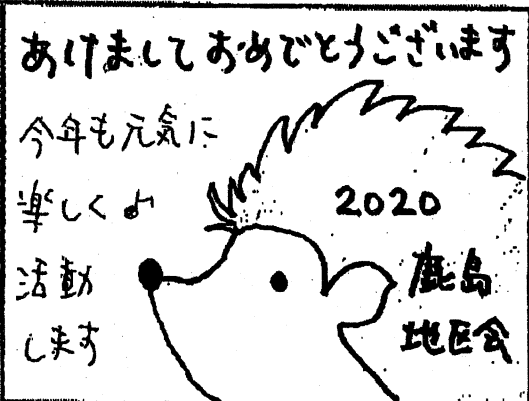 あけましておめでとうございます
今年も元気に
楽しく♪
活動
します
2020
鹿島
地区会